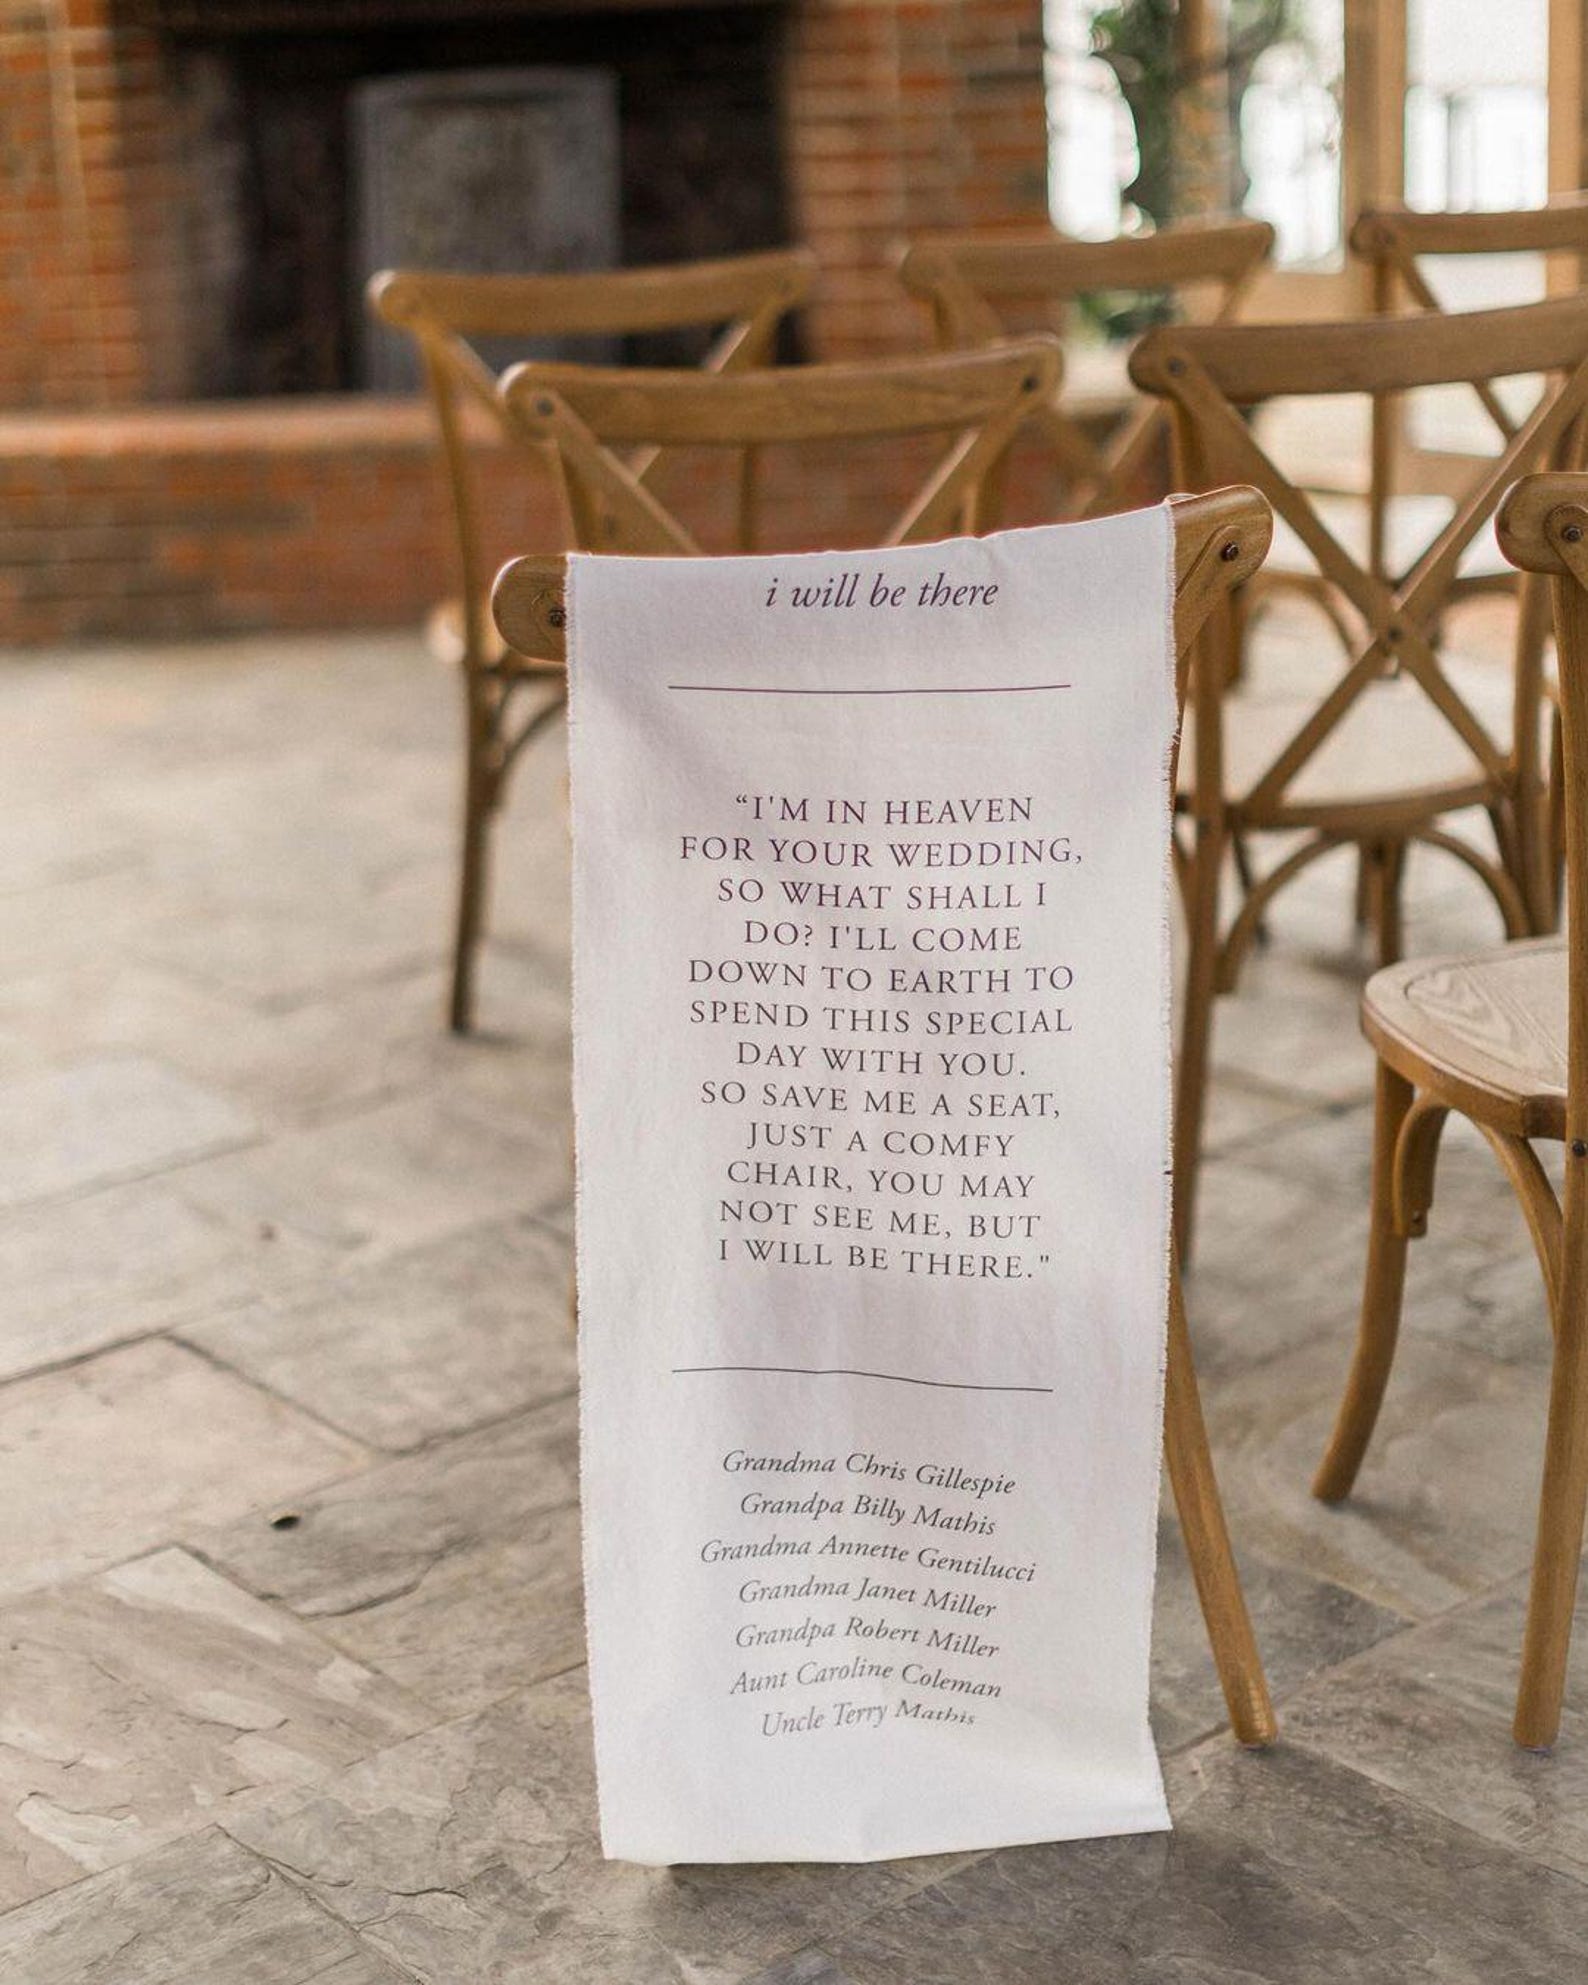 i will be there
“I'M IN HEAVEN
FOR YOUR WEDDING,
SO WHAT SHALL I
DO? I'LL COME
DOWN TO EARTH TO
SPEND THIS SPECIAL
DAY WITH YOU.
SO SAVE ME A SEAT,
JUST A COMFY
CHAIR, YOU MAY
NOT SEE ME, BUT
I WILL BE THERE."
Grandma Chris Gillespie
Grandpa Billy Mathis
Grandma Annette Gentilucci
Grandma Janet Miller
Grandpa Robert Miller
Aunt Caroline Coleman
Uncle Terry Mathis